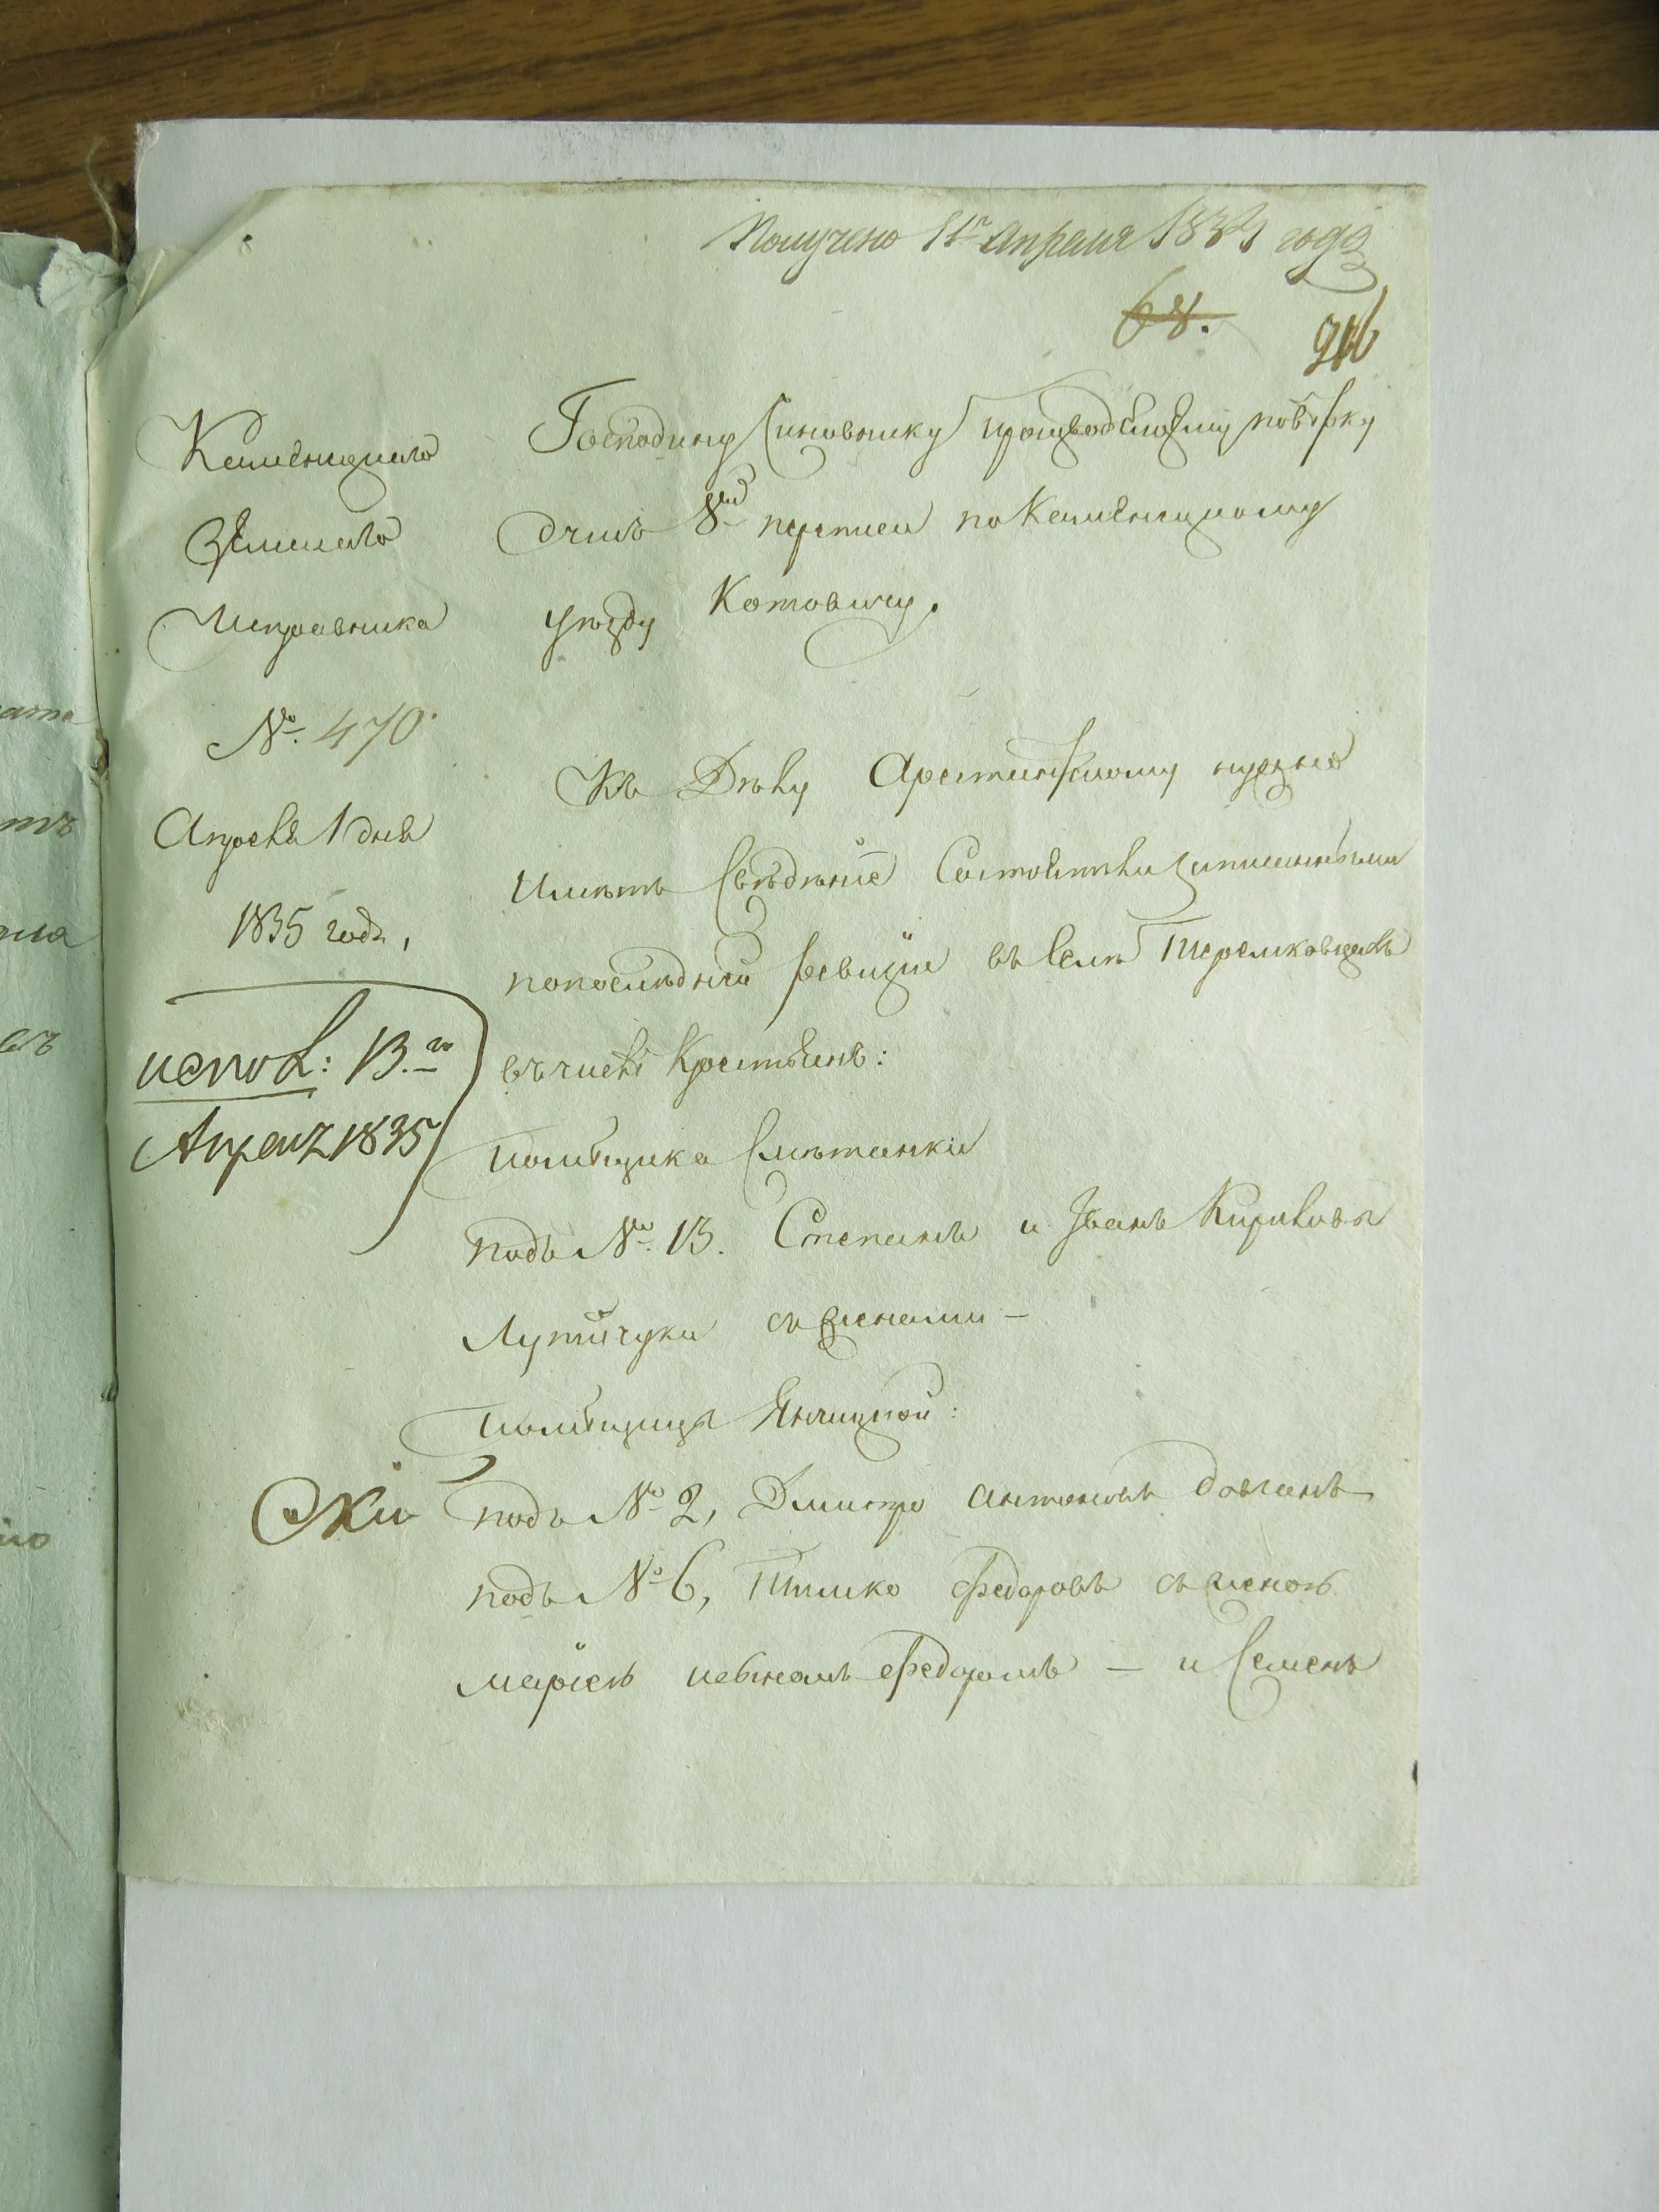 Получено 11го Апреля 1835 года
68.
Каменецкаго
Земскаго
Исправника
№. 470.
Апреля 1 дня
1835 года,
испол: 13.го
Апреля 1835
Господину Чиновнику производящему поверку
душъ 8й по Каменецкому
уѣзду Котовичу.
Къ Дѣлу нужно
имѣть свѣдѣніе Состоятъ ли записанными
по последней ревизіи въ селе Шеремковцахъ
въ числе Крестьянъ:
Помещика Сметанки
подъ №. 13. Степанъ и Іванъ Кириловы
съ женами —
Помещицы Янчицкой:
подъ № 2, Дмитро Антоновъ Довгань
подъ № 6, Тимко Федоровъ съ женою
Маріею и сыномъ Федоромъ — и Семенъ